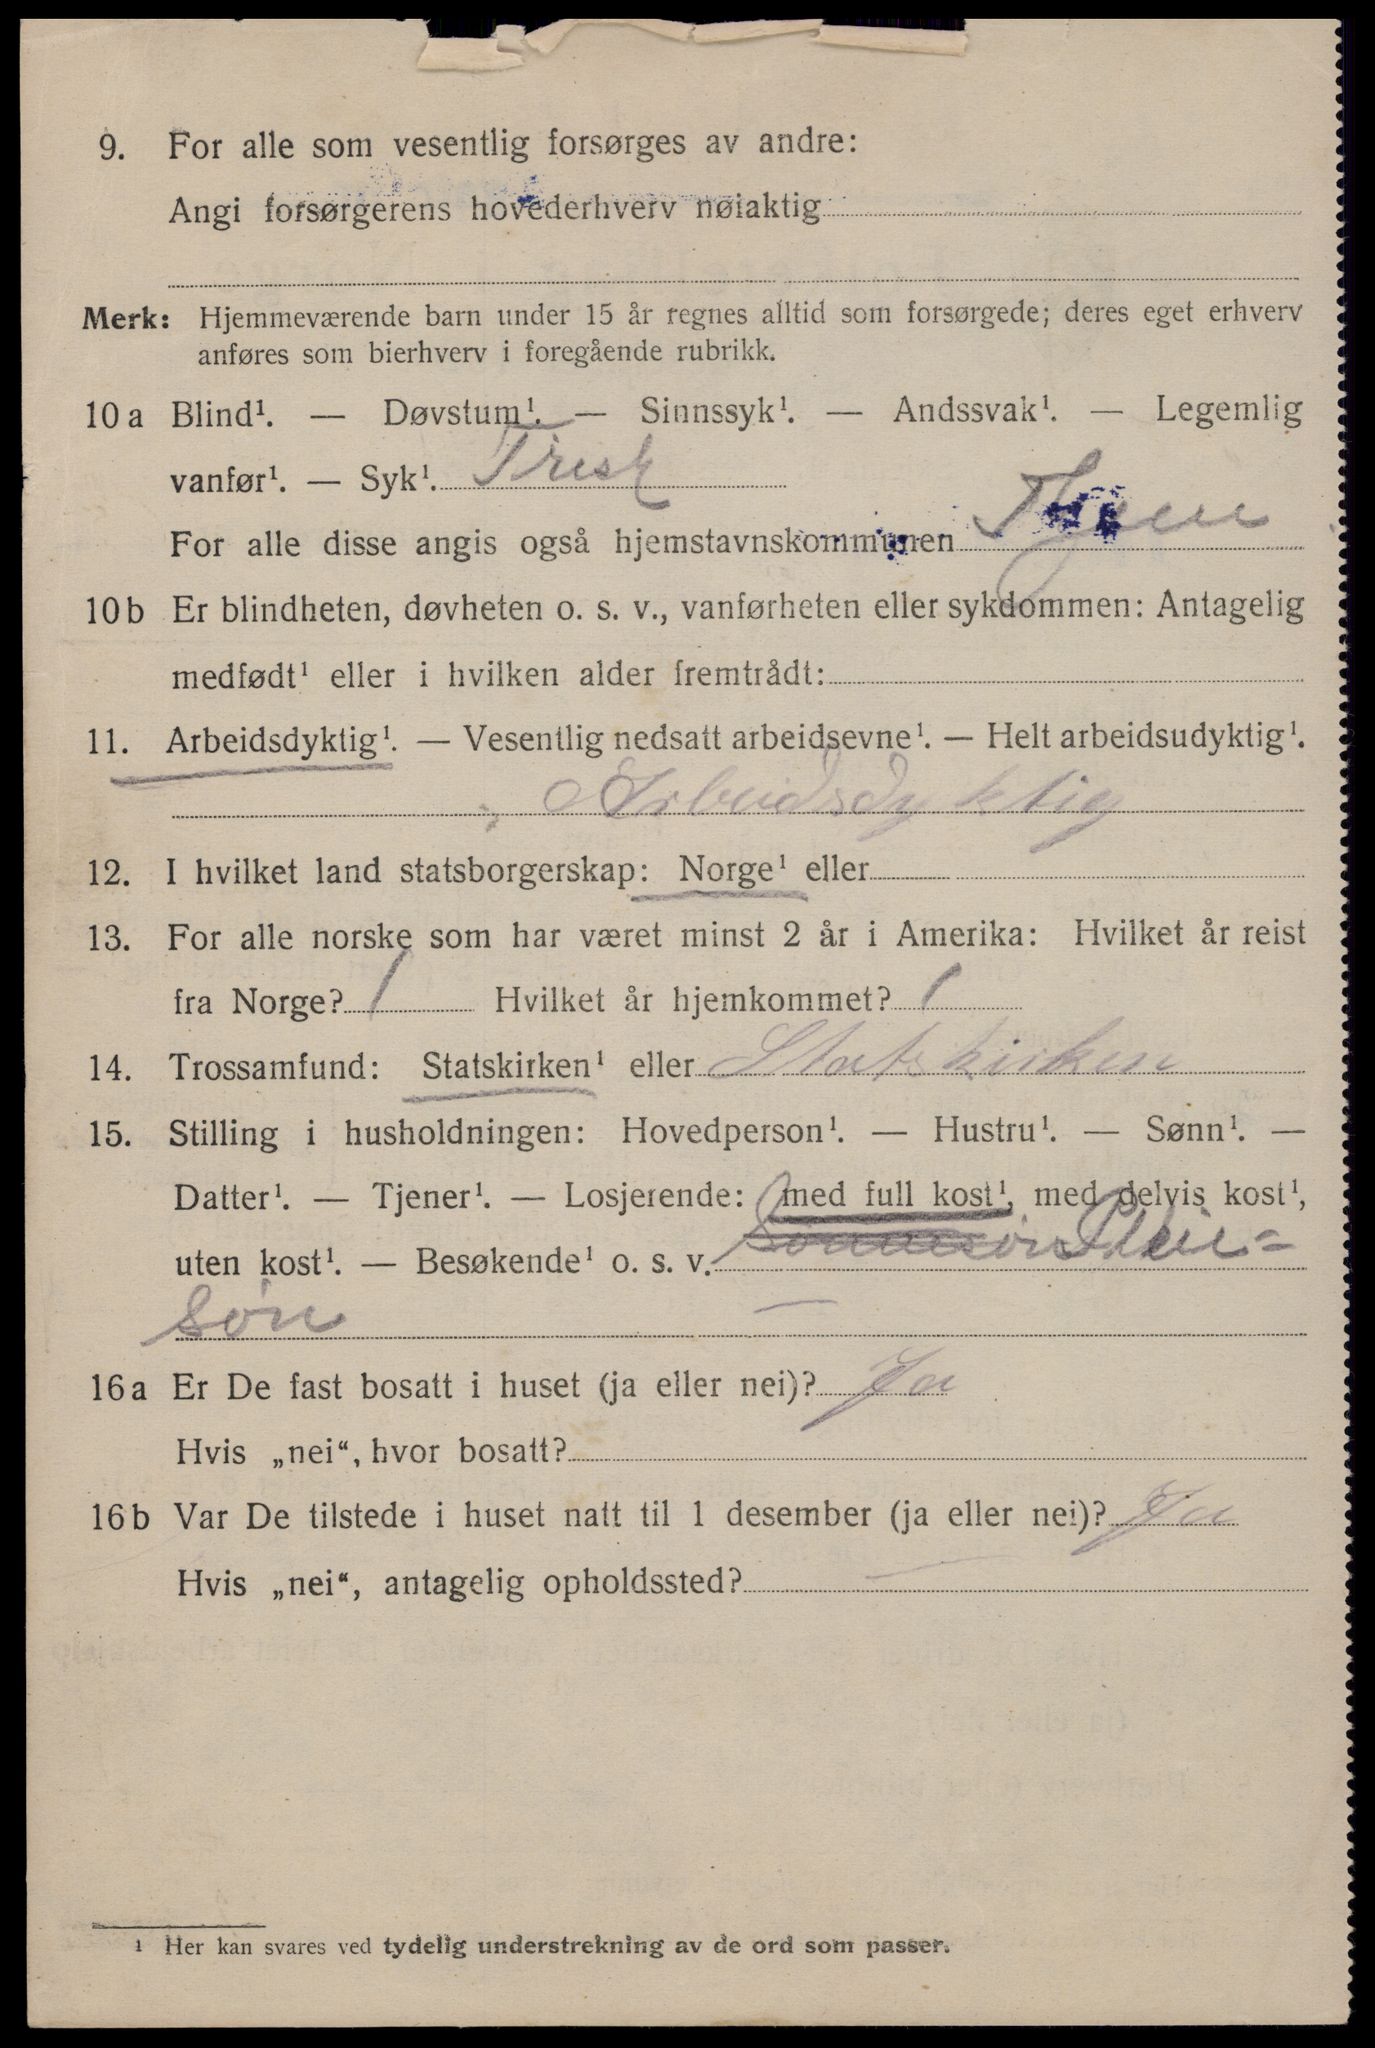 9. For alle som vesentlig forsørges av andre:
Angi forsørgerens hovederhverv nøiaktig
Merk: Hjemmeværende barn under 15 år regnes alltid som forsørgede; deres eget erhverv
anføres som bierhverv i foregående rubrikk.
10 a Blind¹. — Døvstum¹. — Sinnssyk¹. — Andssvak¹. — Legemlig
vanfør¹. — Syk¹. Frisk
For alle disse angis også hjemstavnskommunen
10 b Er blindheten, døvheten o. s. v., vanførheten eller sykdommen: Antagelig
medfødt¹ eller i hvilken alder fremtrådt:
11. Arbeidsdyktig¹. — Vesentlig nedsatt arbeidsevne¹. — Helt arbeidsudyktig¹.
Arbeidsdyktig
12. I hvilket land statsborgerskap: Norge¹ eller
13. For alle norske som har været minst 2 år i Amerika: Hvilket år reist
fra Norge? / Hvilket år hjemkommet? /
14. Trossamfund: Statskirken¹ eller Statskirken
15. Stilling i husholdningen: Hovedperson¹. — Hustru¹. — Sønn¹. —
Datter¹. — Tjener¹. — Losjerende: med full kost¹, med delvis kost¹,
uten kost¹. — Besøkende¹ o. s. v. Sønnesøn Plei-
søn —
16 a Er De fast bosatt i huset (ja eller nei)? Ja
Hvis „nei“, hvor bosatt?
16 b Var De tilstede i huset natt til 1 desember (ja eller nei)? Ja
Hvis „nei“, antagelig opholdssted? —
¹ Her kan svares ved tydelig understrekning av de ord som passer.